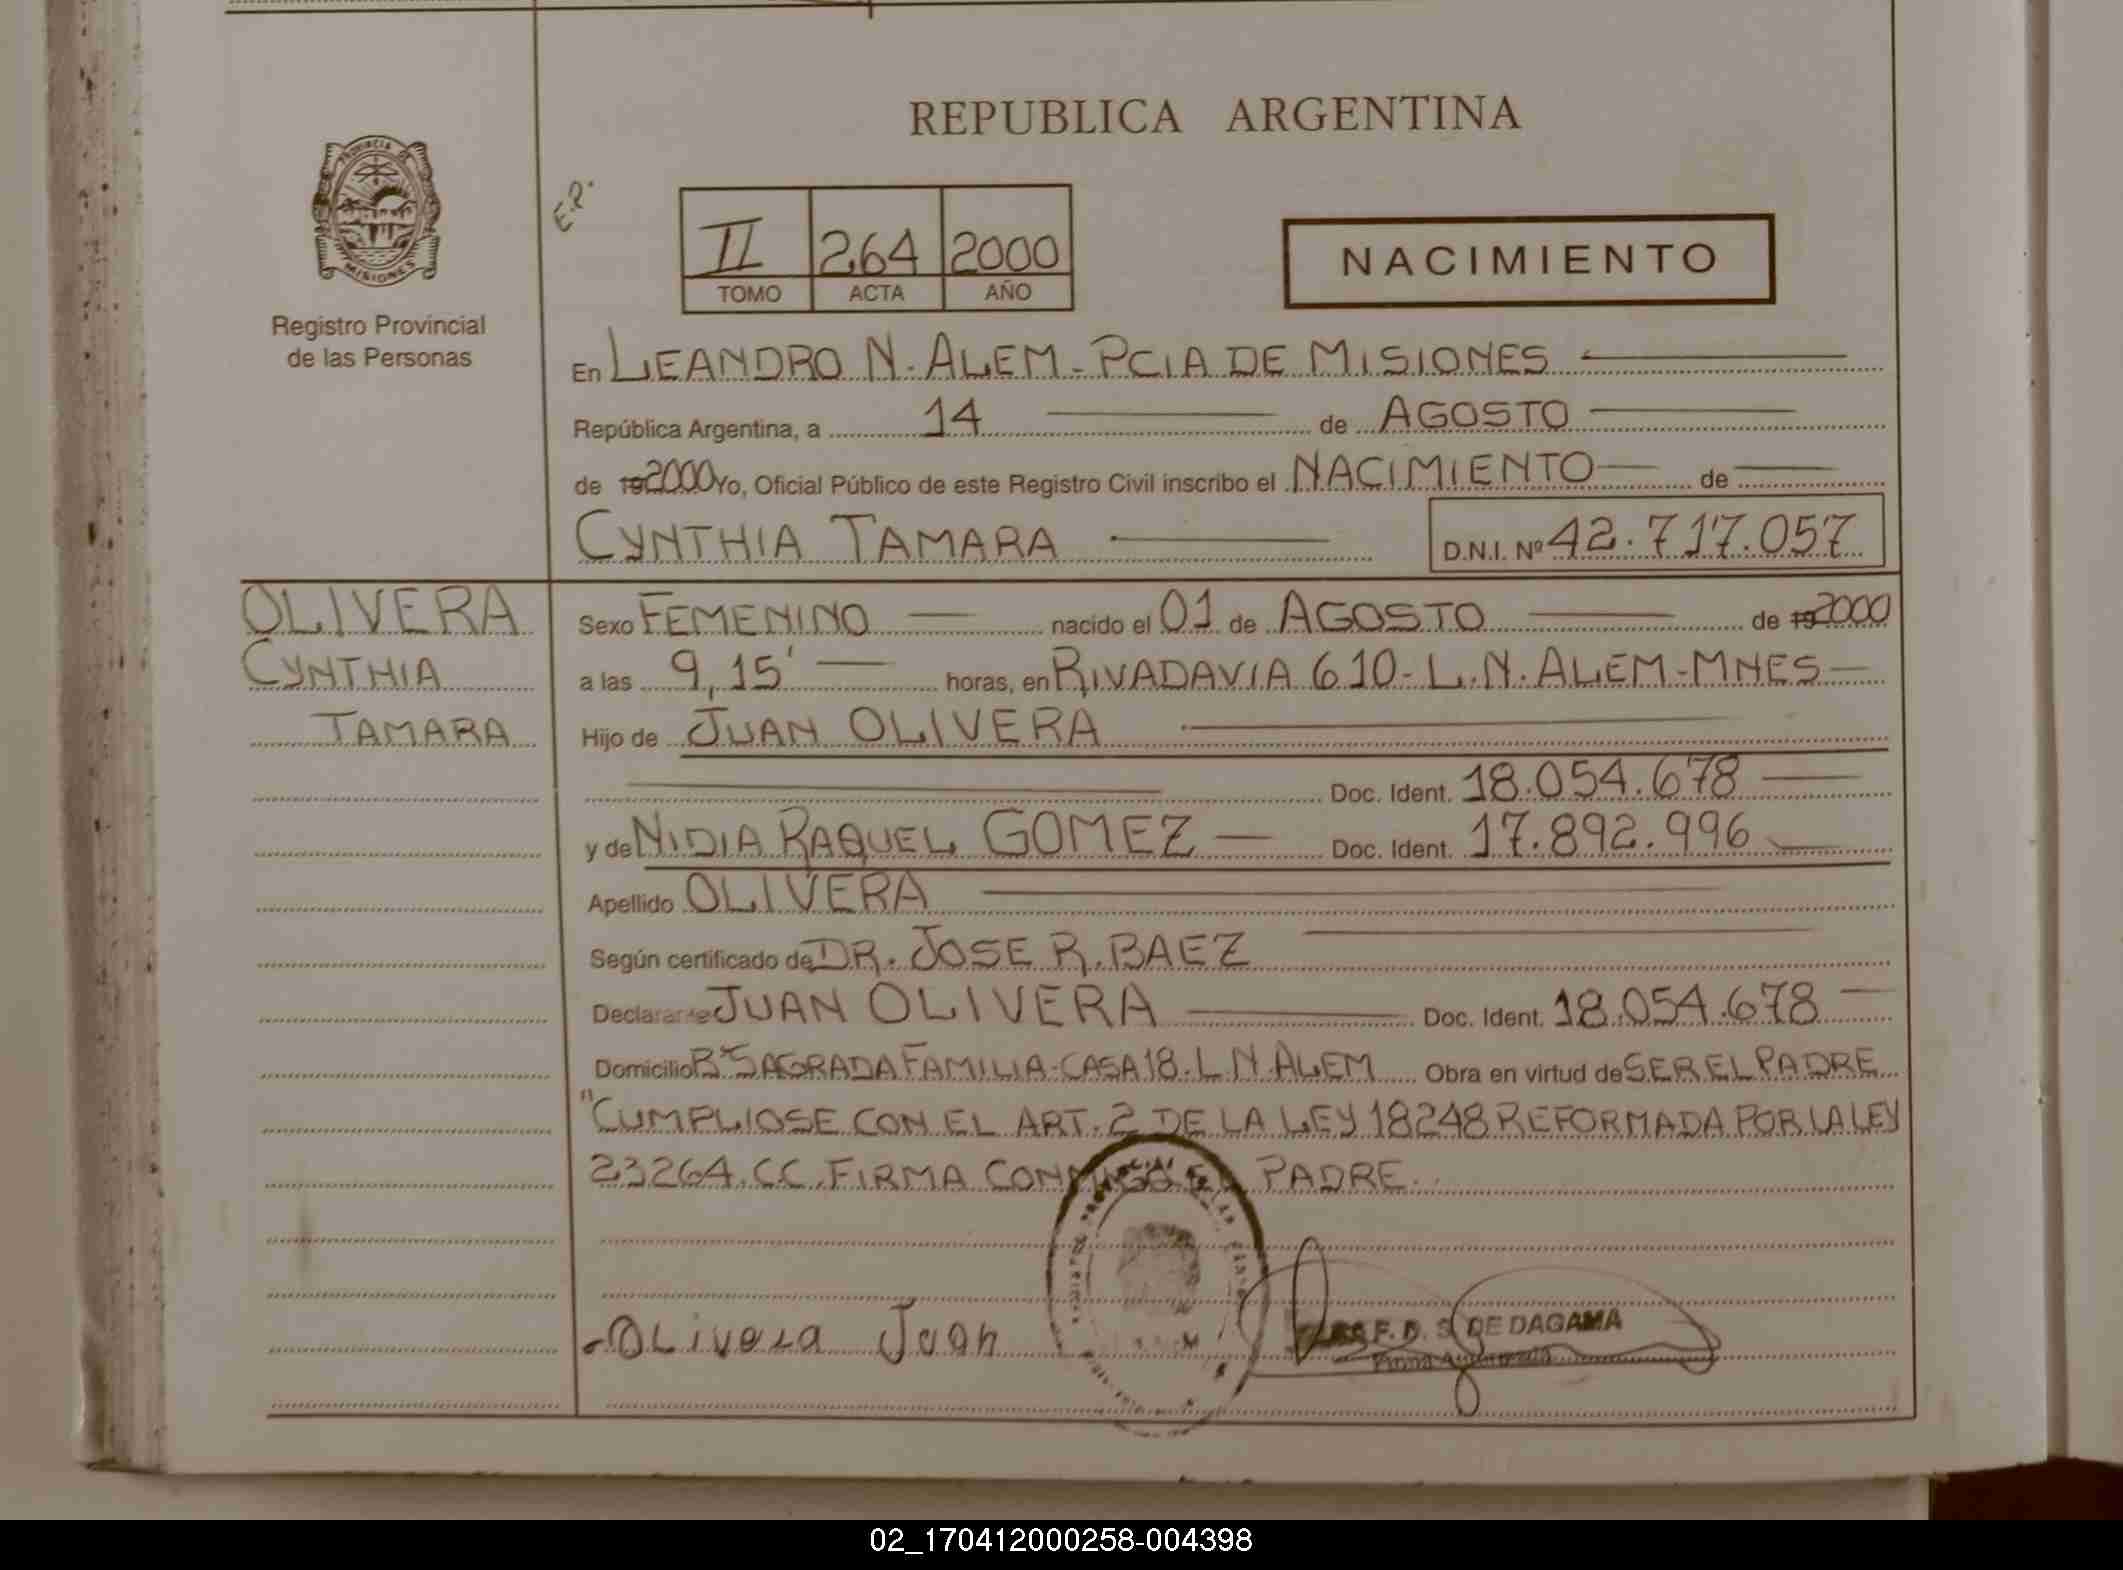 REPUBLICA ARGENTINA
PROVINCIA DE
MISIONES
Registro Provincial
de las Personas
E.R.
II 264 2000
TOMO ACTA AÑO
NACIMIENTO
En LEANDRO N. ALEM - PCIA DE MISIONES
República Argentina, a 14 de AGOSTO
de 19 2000 Yo, Oficial Público de este Registro Civil inscribo el NACIMIENTO de
CYNTHIA TAMARA D.N.I. Nº 42.717.057
OLIVERA
CYNTHIA
TAMARA
Sexo FEMENINO nacido el 01 de AGOSTO de 19 2000
a las 9,15' horas, en RIVADAVIA 610 - L.N. ALEM - MNES
Hijo de JUAN OLIVERA
Doc. Ident. 18.054.678
y de NIDIA RAQUEL GOMEZ Doc. Ident. 17.892.996
Apellido OLIVERA
Según certificado de DR. JOSE R. BAEZ
Declarante JUAN OLIVERA Doc. Ident. 18.054.678
Domicilio Bº SAGRADA FAMILIA - CASA 18. L.N. ALEM Obra en virtud de SER EL PADRE
"CUMPLIOSE CON EL ART. 2 DE LA LEY 18248 REFORMADA POR LA LEY
23264. CC. FIRMA CONMIGO EL PADRE.
Olivera Juan
F. D. S. DE DAGAMA
02_170412000258-004398